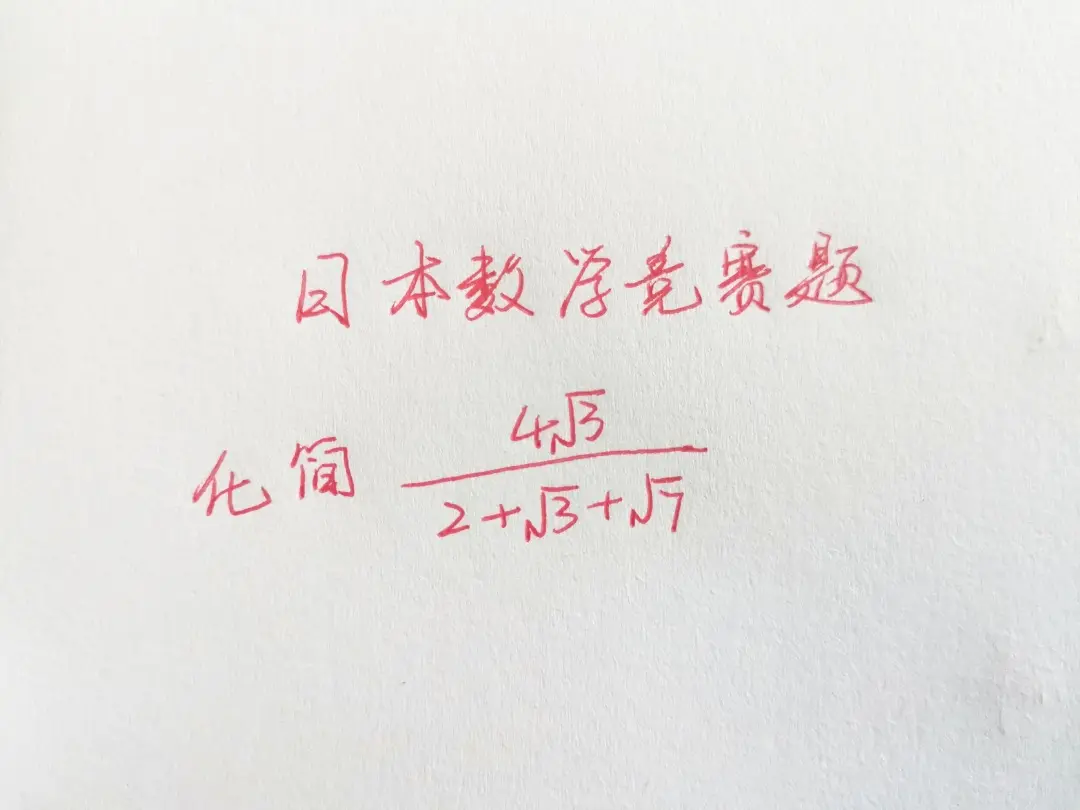 日本数学竞赛题
化简 \frac{4\sqrt{3}}{2+\sqrt{3}+\sqrt{7}}